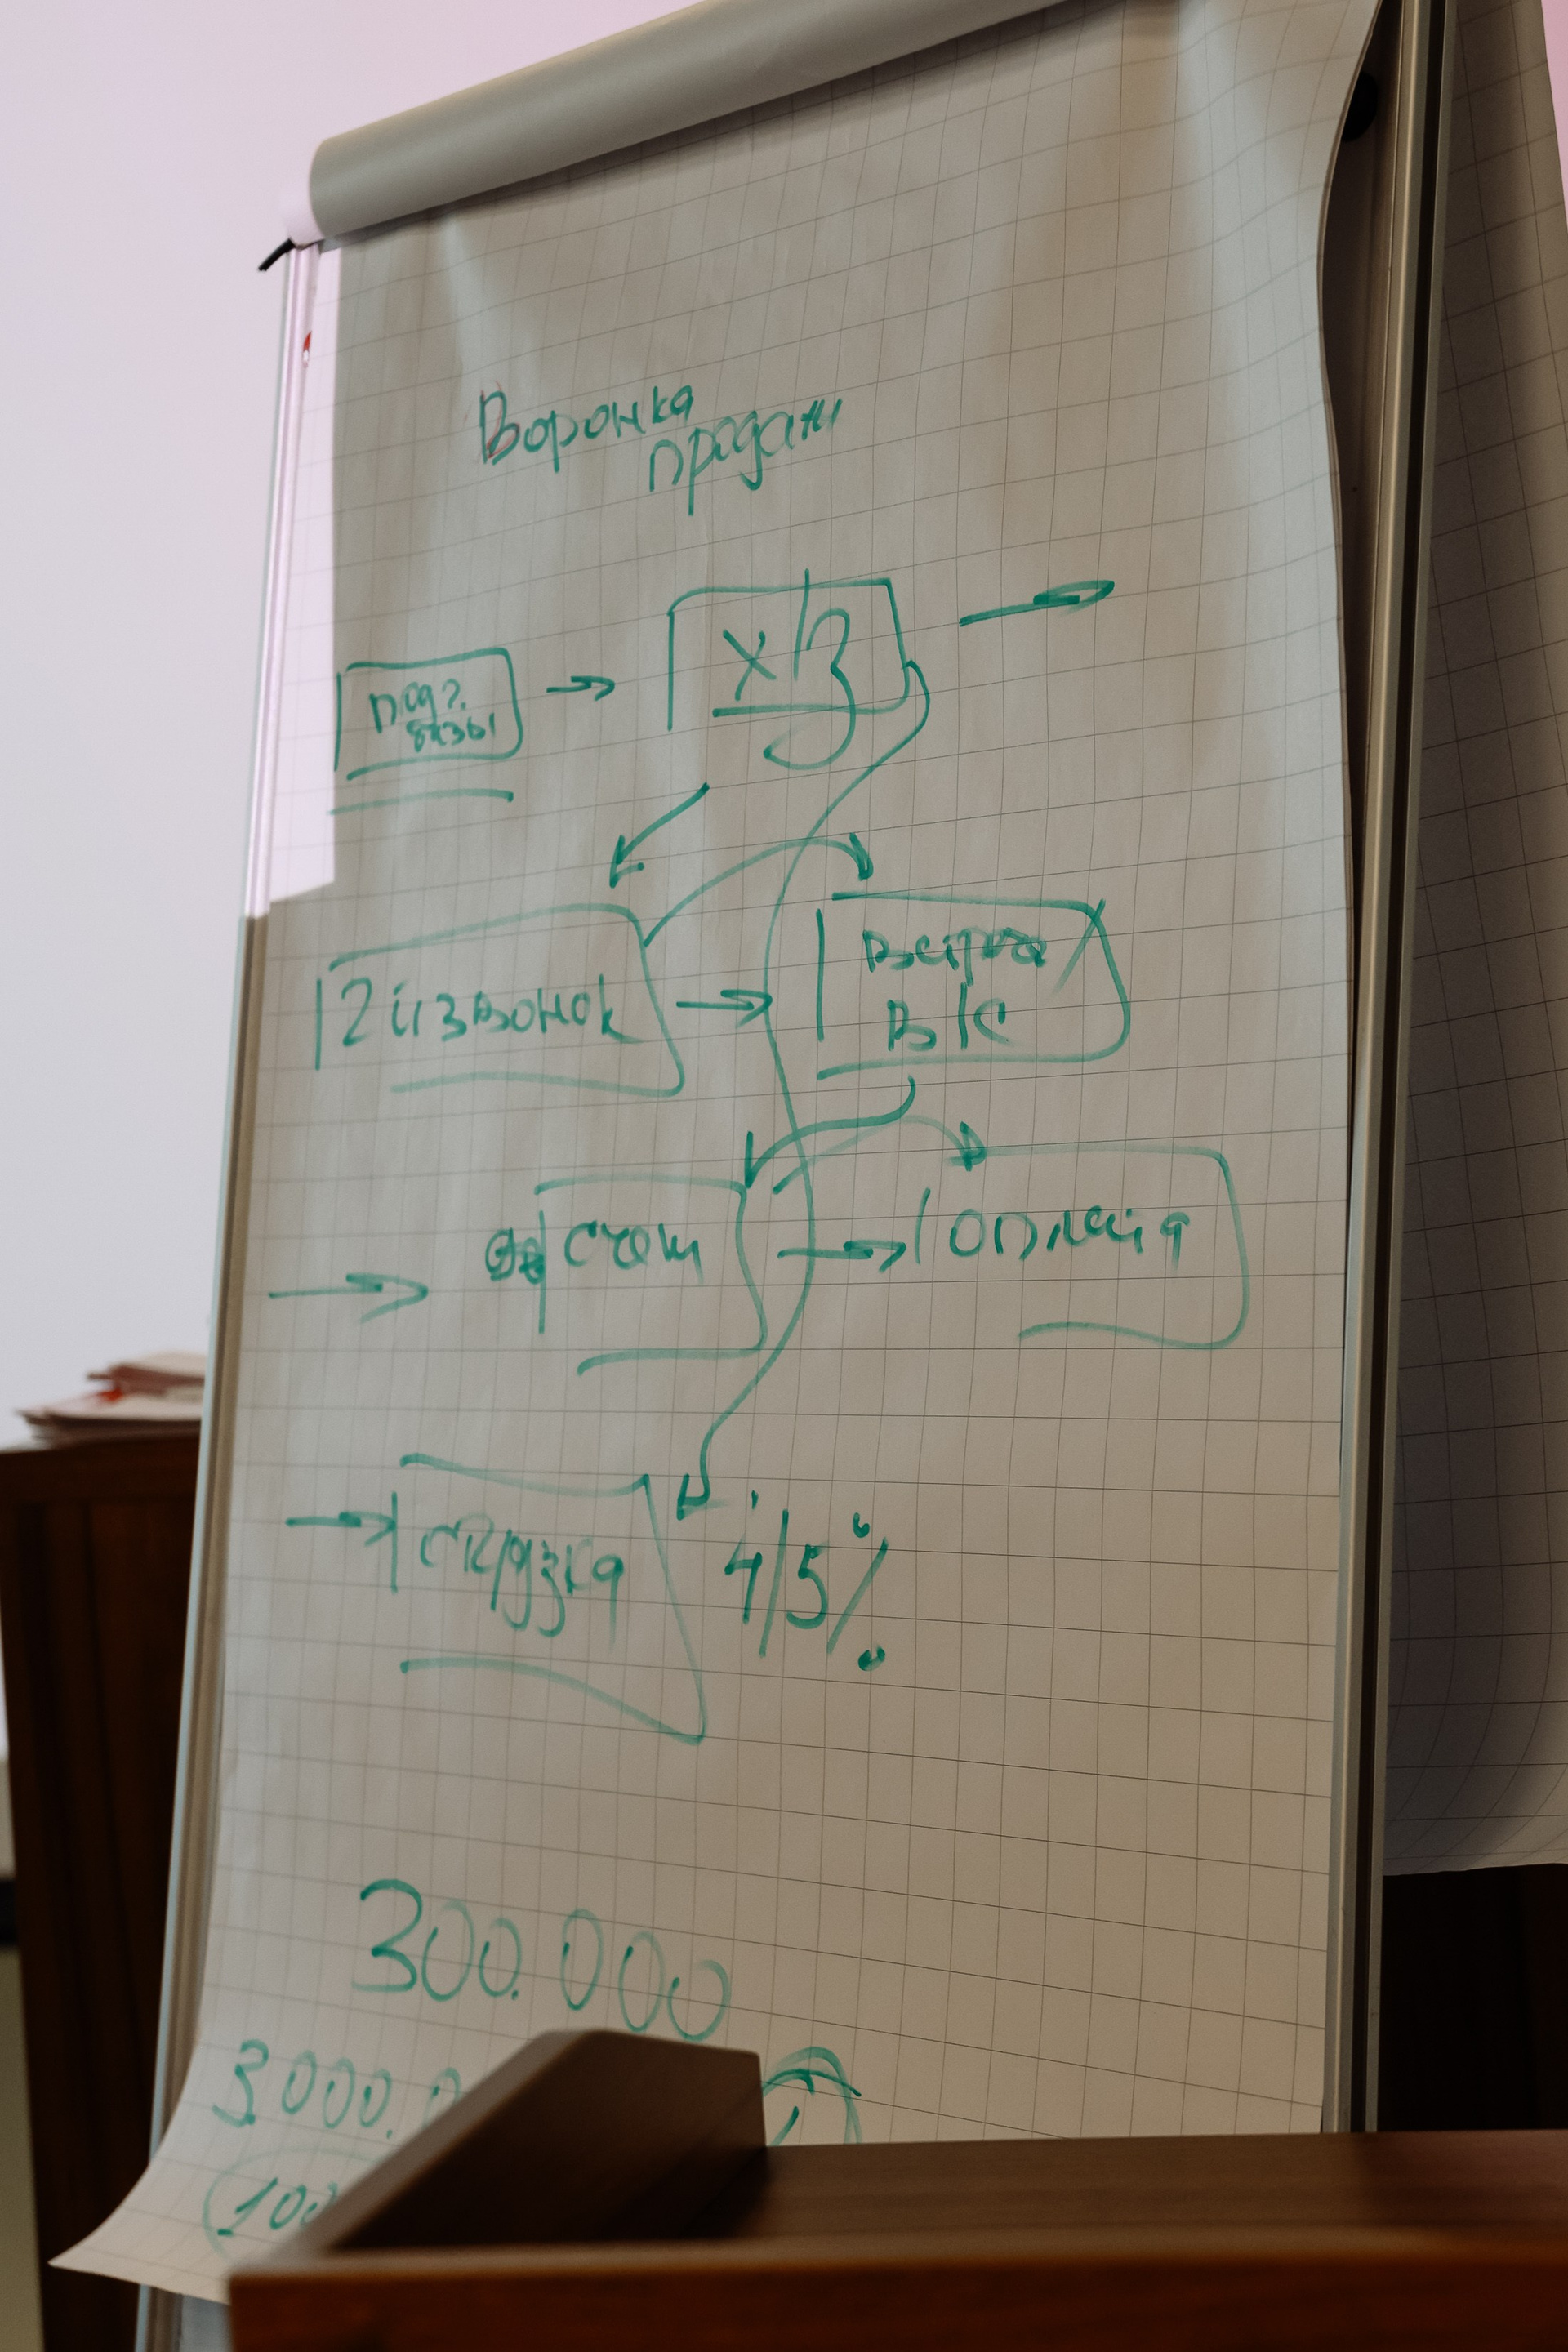 Воронка
продаж
подг.
базы
Х/З
2й звонок
Встреча /
В/К
счет
оплата
отгрузка
4/5%
300.000
3000.0
100